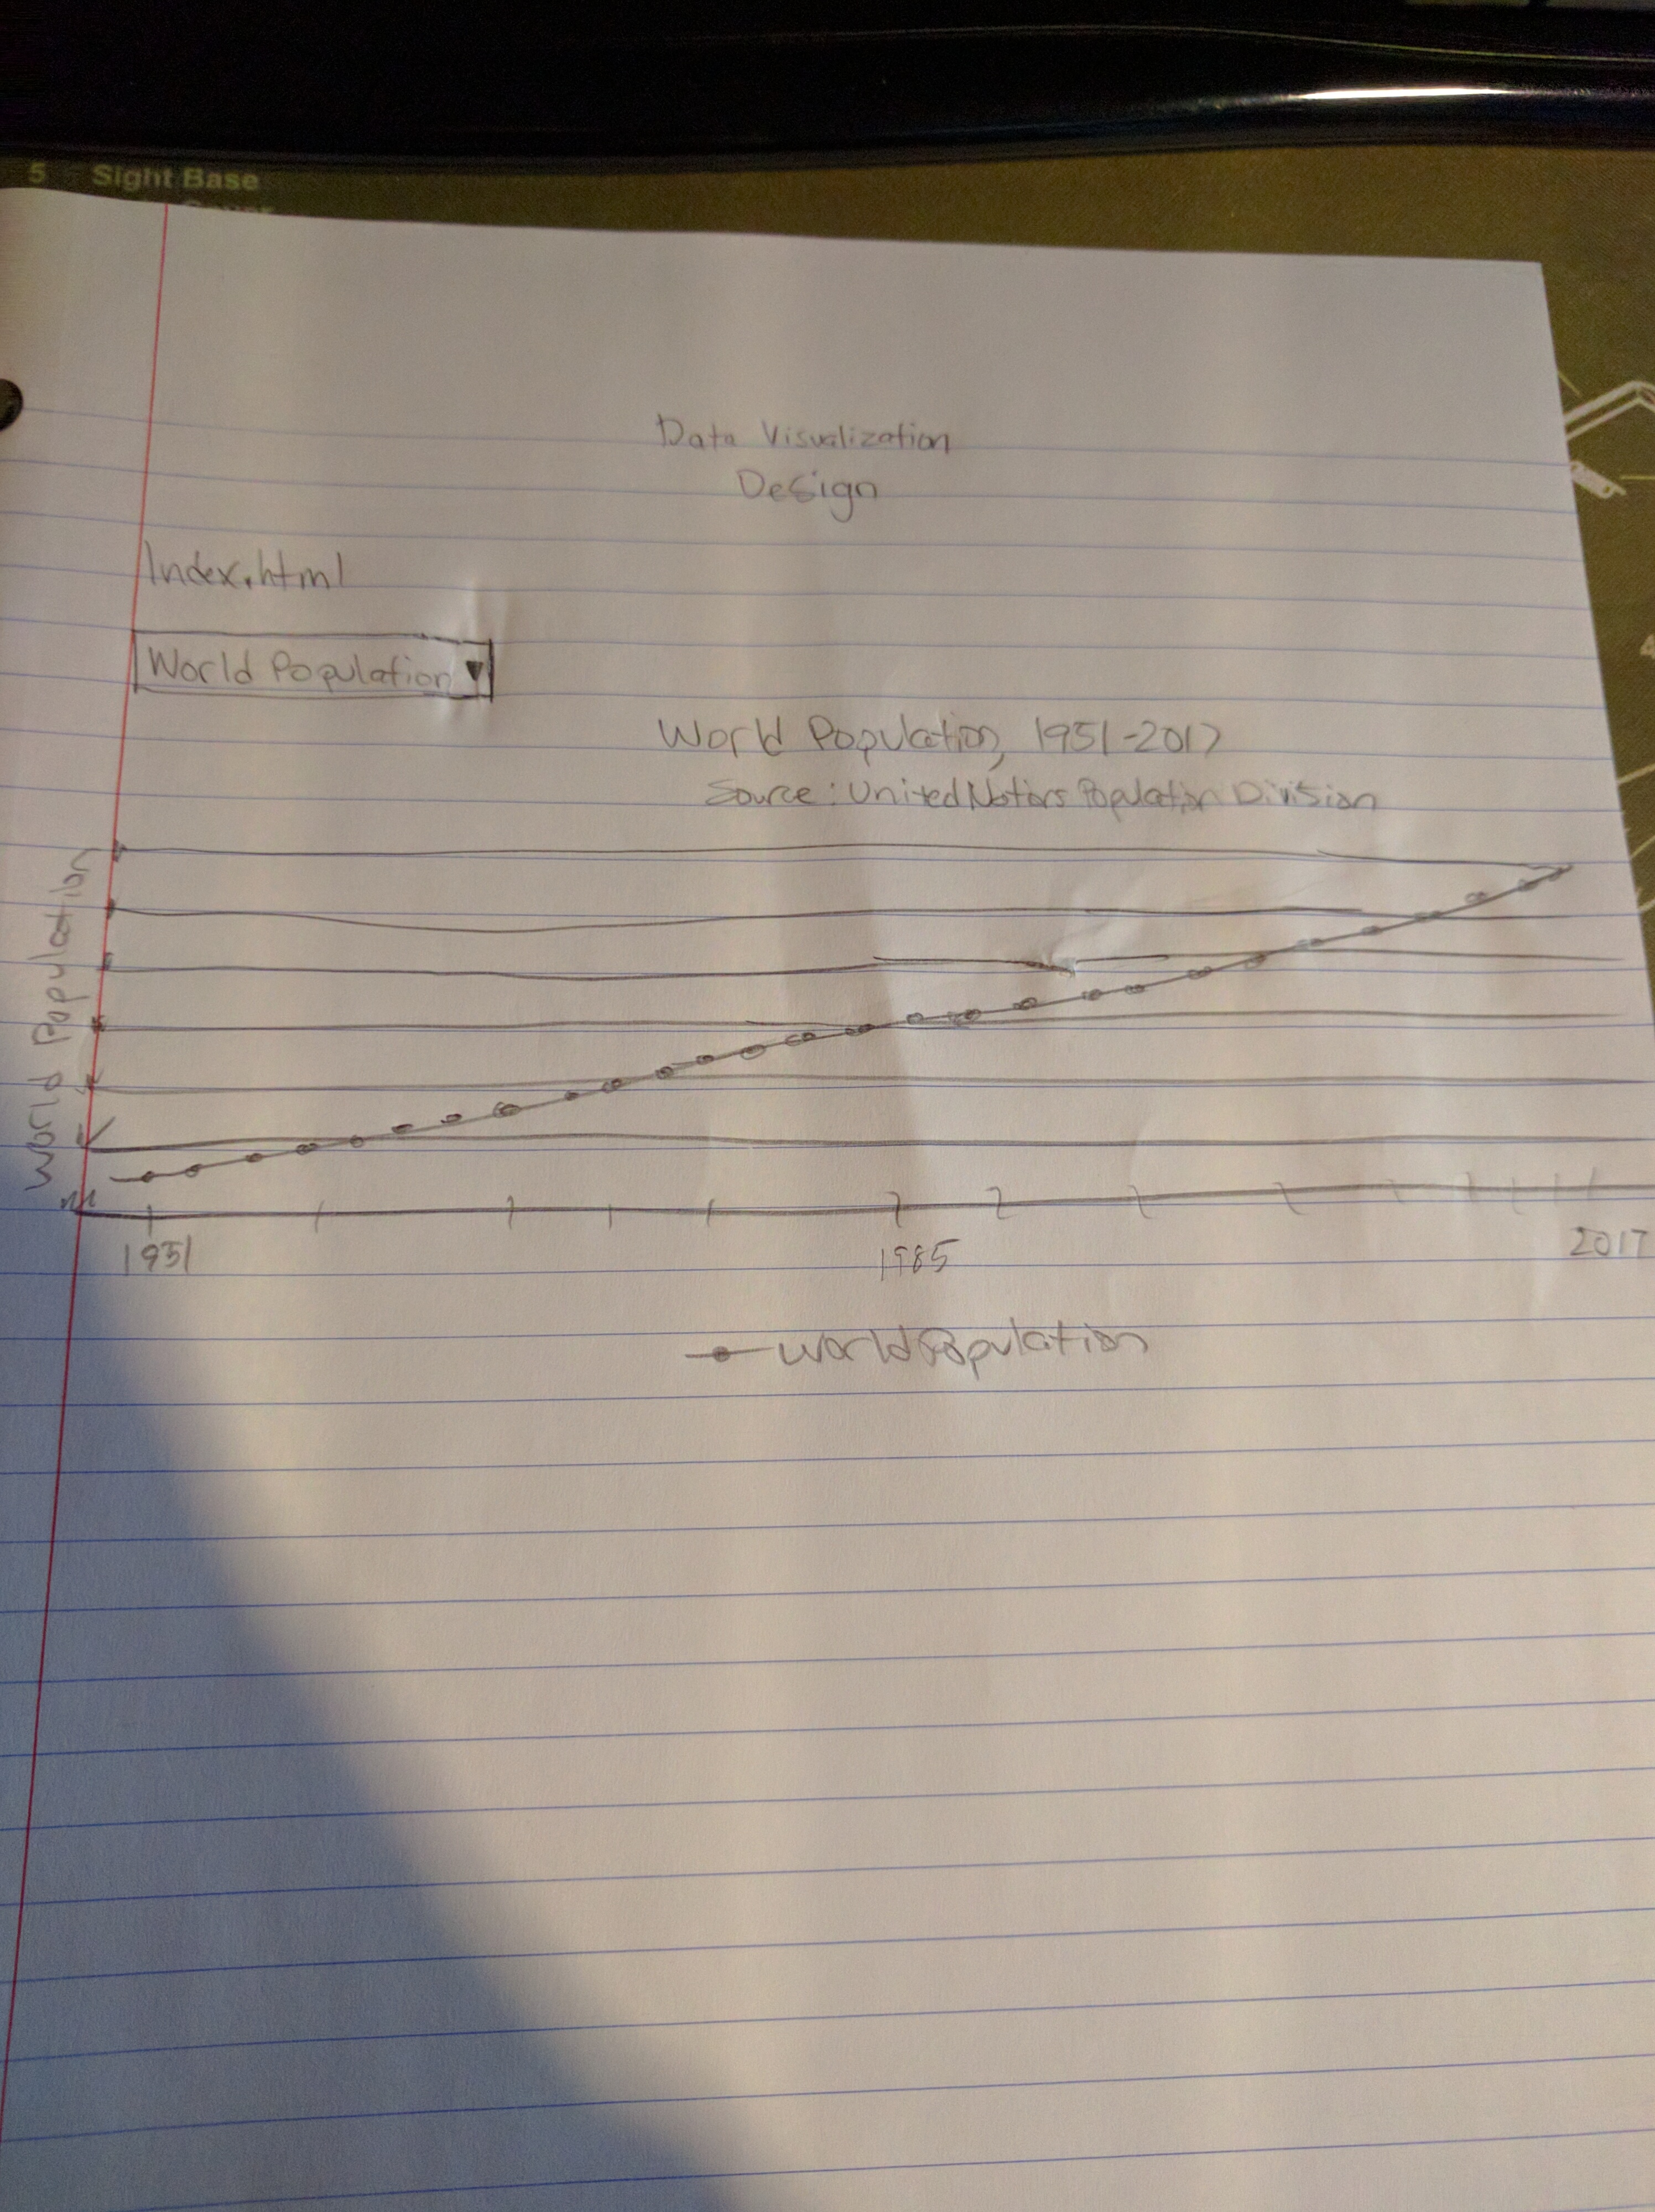 5 Sight Base
Cover
Data Visualization
Design
Index.html
World Population
World Population, 1951-2017
Source: United Nations Population Division
World Population
1951
1985
2017
World Population
4